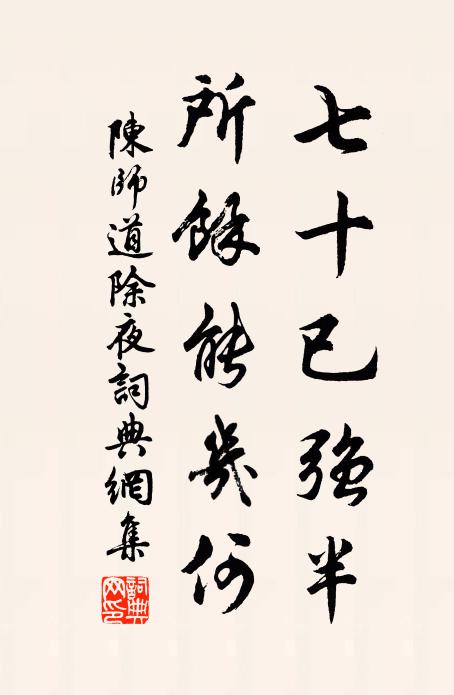 七十已強半
所餘能幾何
陳師道除夜詞典網集
詞典網印